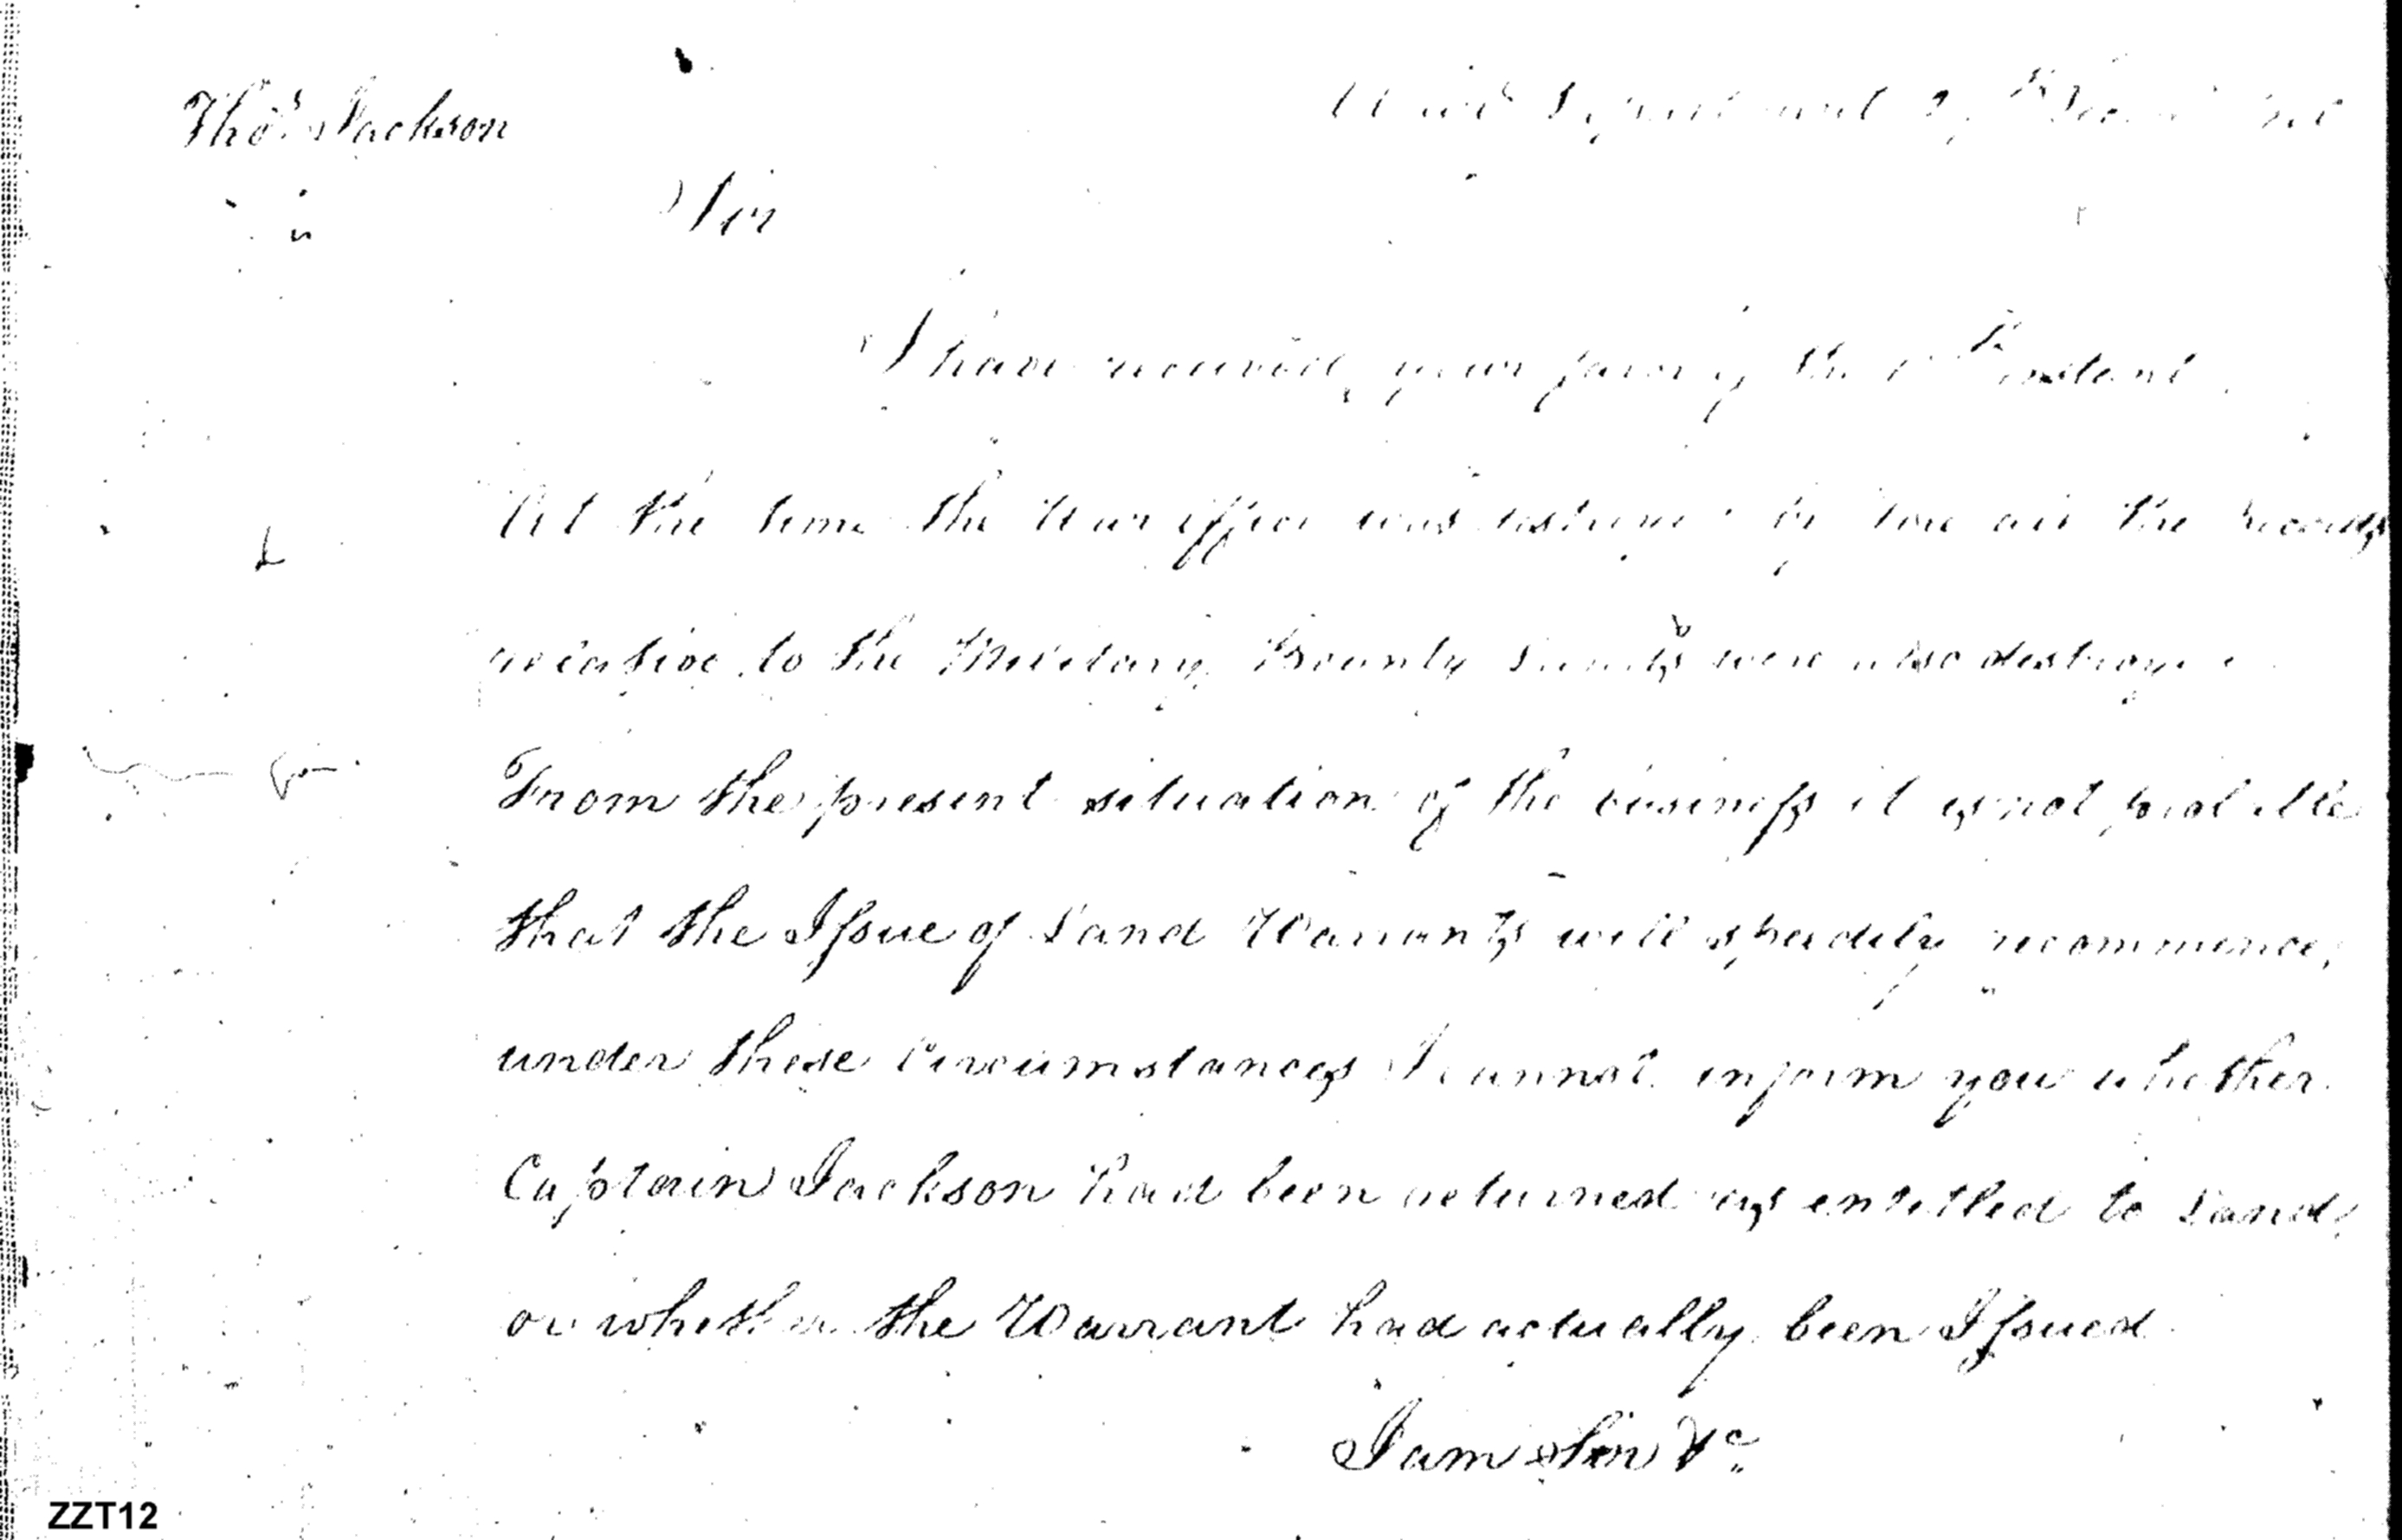 Thos. Jackson
War Department
Sir
I have received your favor of the instant.
At the time the War office was destroyed by fire all the records
relative to the Military Bounty Lands were also destroyed
From the present situation of the business it is not probable
that the Issue of Land Warrants will speedily recommence,
under these Circumstances I cannot inform you whether
Captain Jackson had been returned as entitled to Land,
or whether the Warrant had actually been Issued
I am Sir &c
ZZT12